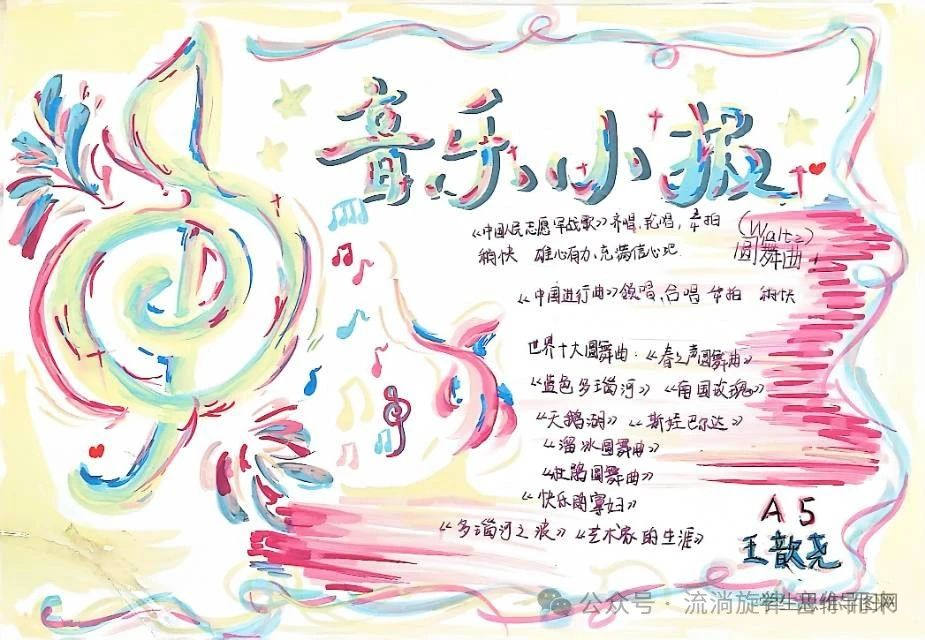 音乐小报
《中国人民志愿军战歌》齐唱,轮唱, 2/4拍
稍快 雄心有力,充满信心地
(Waltz)
圆舞曲
《中国进行曲》领唱,合唱 2/4拍 稍快
世界十大圆舞曲:《春之声圆舞曲》
《蓝色多瑙河》《南国玫瑰》
《天鹅湖》《斯拉巴尔达》
《溜冰圆舞曲》
《杜鹃圆舞曲》
《快乐的寡妇》
《多瑙河之波》《艺术家的生涯》
A5
王歆尧
公众号·流淌旋
学生思维导图网